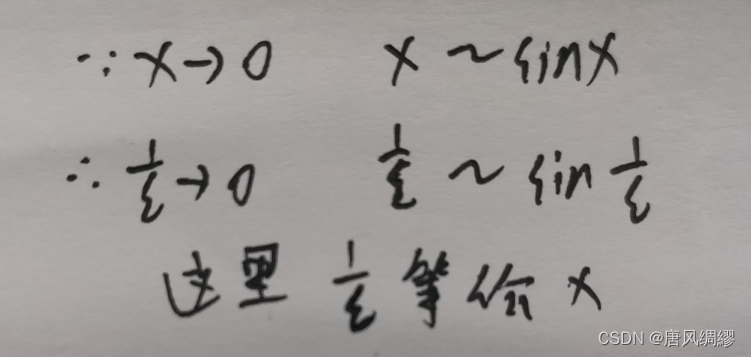 ∵ x→0 x ~ sinx
∴ 1/ε→0 1/ε ~ sin 1/ε
这里 1/ε 等价 x
CSDN @唐风绸缪